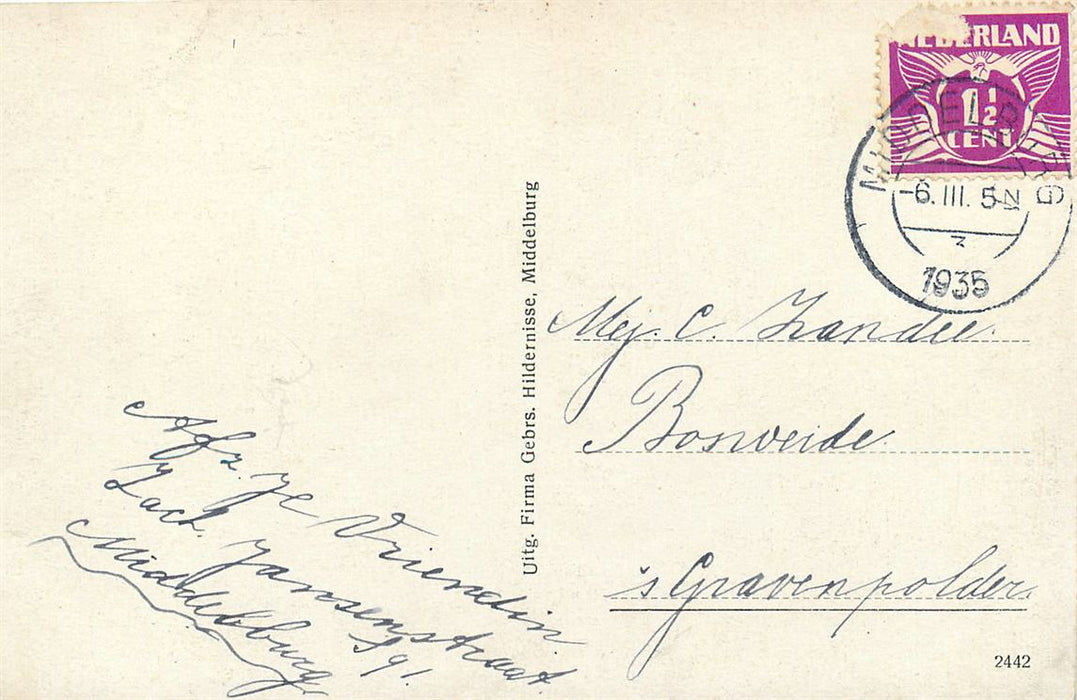 NEDERLAND
1½
CENT
MIDDELBURG
-6.III. 5N
1935
Mej. C. Zandee.
Bosweide.
's Gravenpolder.
Uitg. Firma Gebrs. Hildernisse, Middelburg
Afz. Je Vriendin
Zach. Jansenstraat
91.
Middelburg
2442